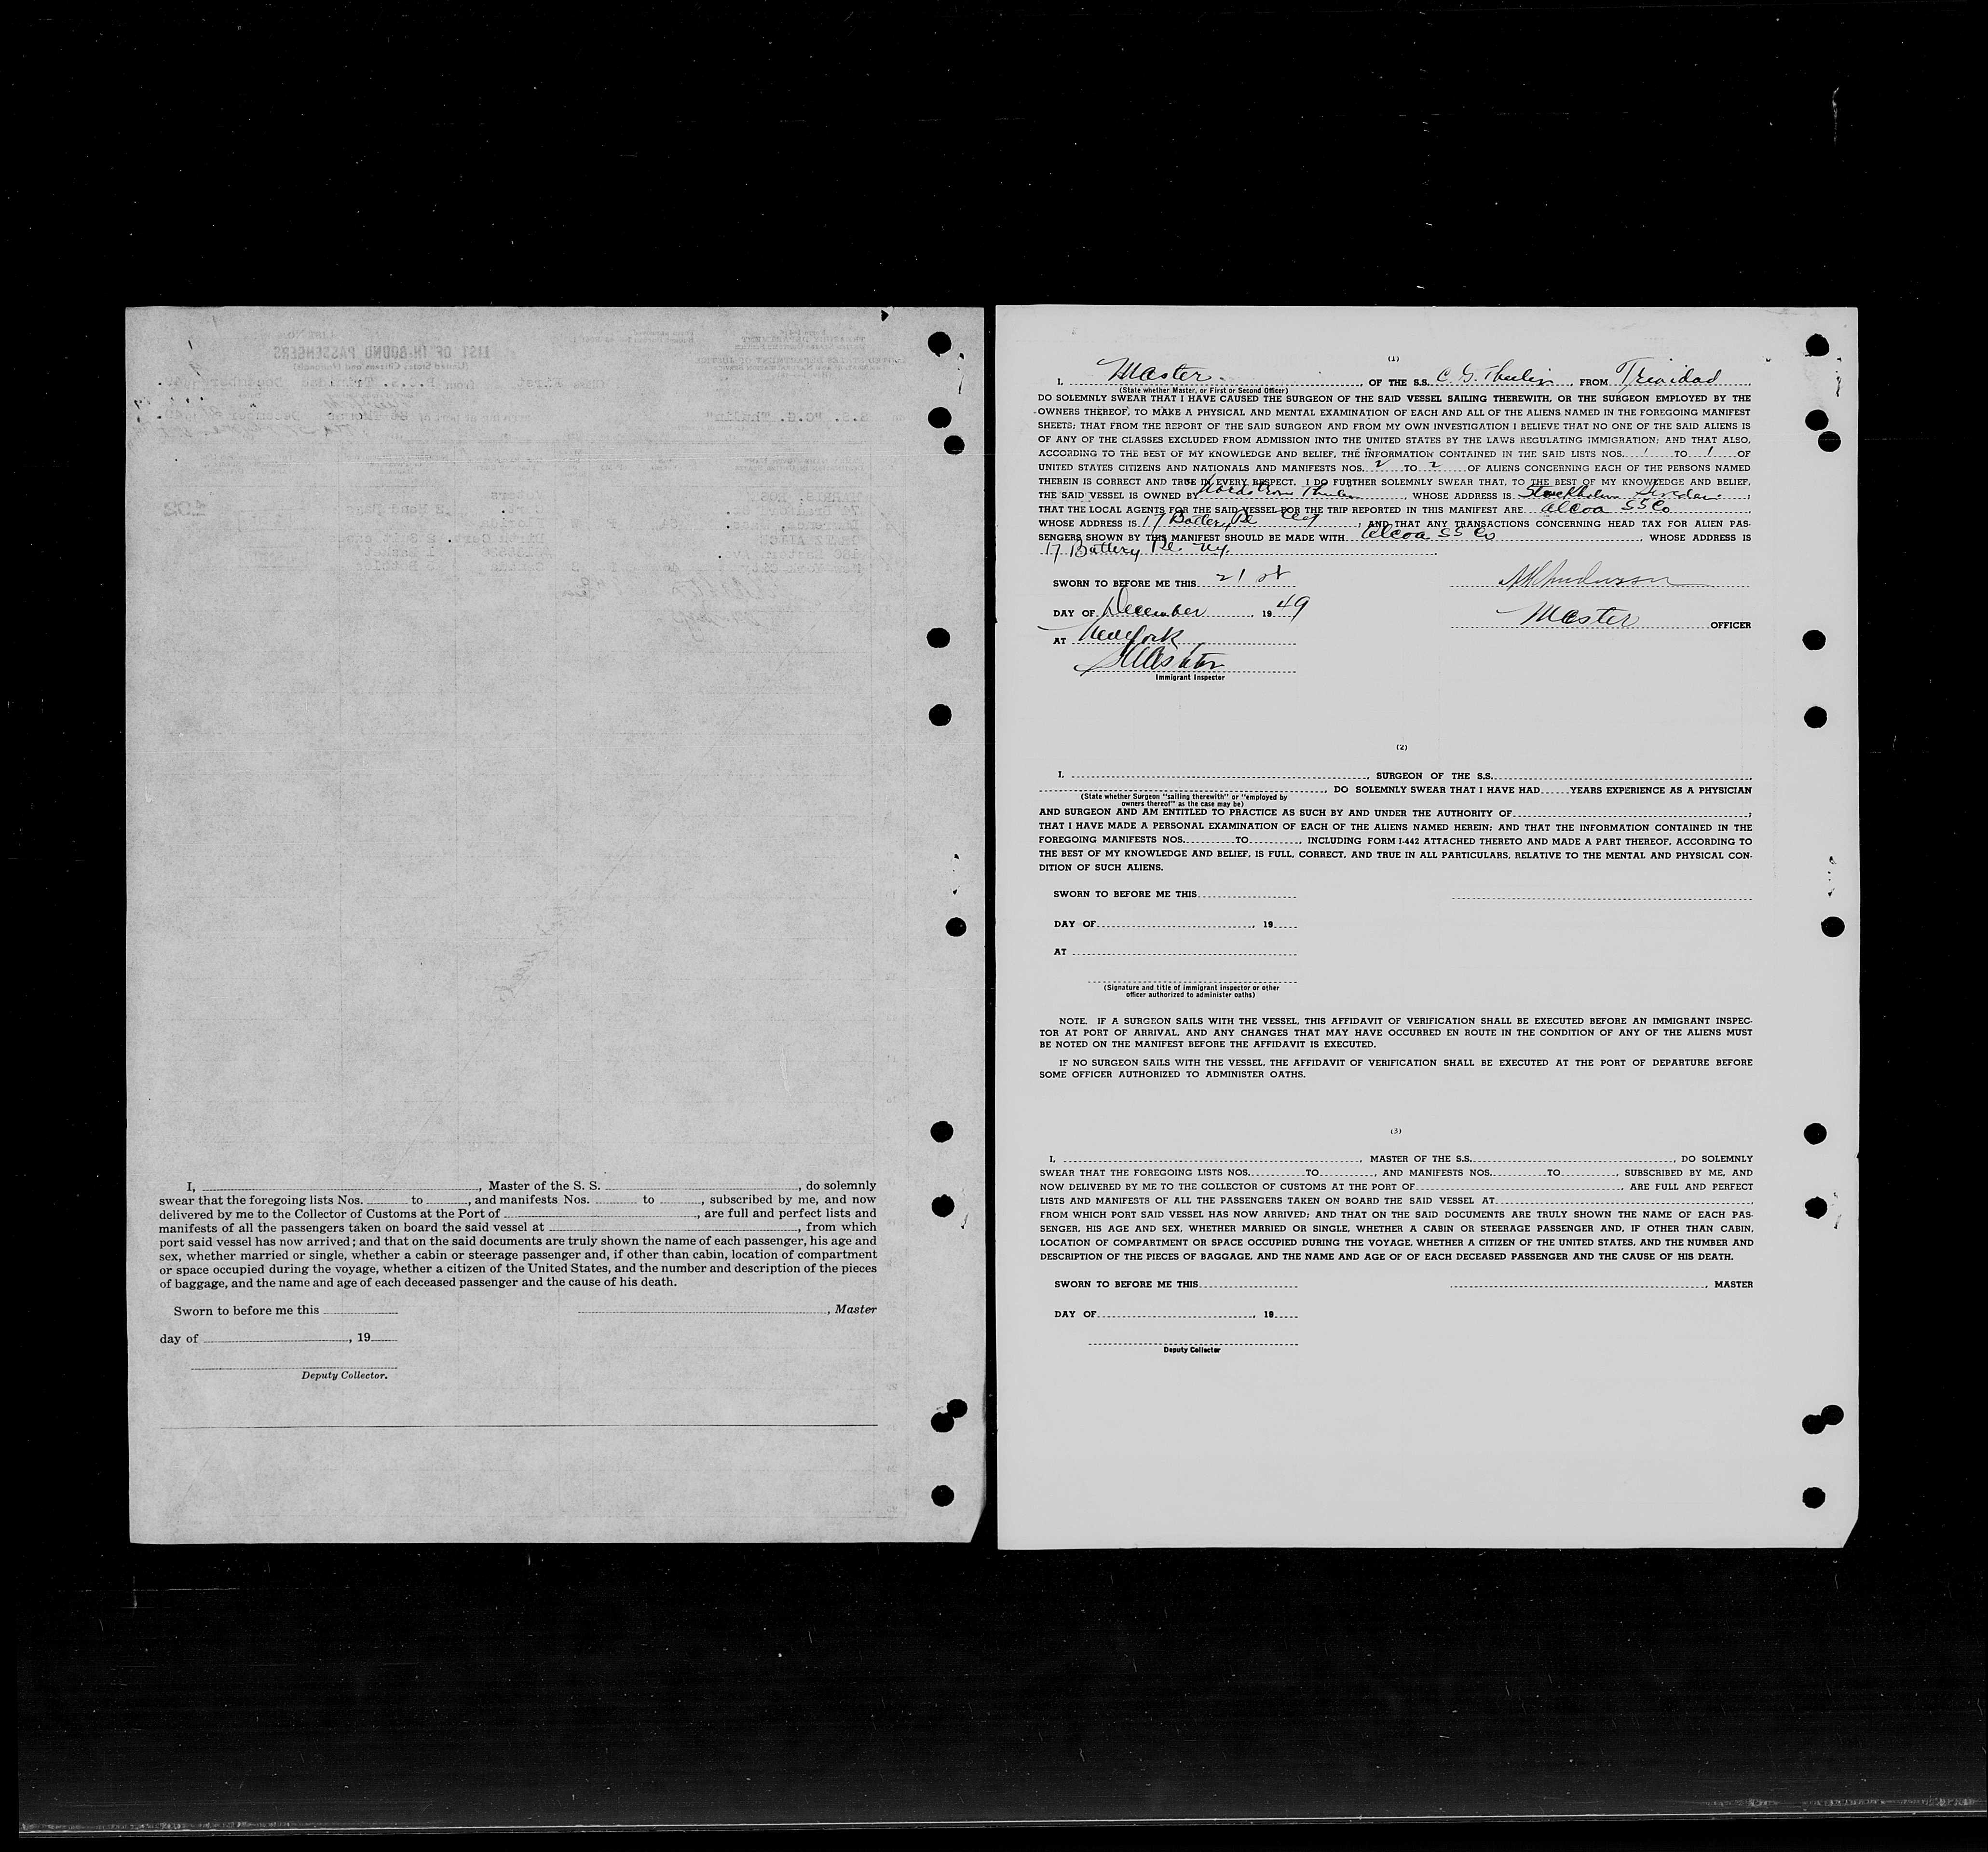 LIST OF IN-BOUND PASSENGERS
(United States Citizens and Nationals)
I, , Master of the S. S. , do solemnly
swear that the foregoing lists Nos. to , and manifests Nos. to , subscribed by me, and now
delivered by me to the Collector of Customs at the Port of , are full and perfect lists and
manifests of all the passengers taken on board the said vessel at , from which
port said vessel has now arrived; and that on the said documents are truly shown the name of each passenger, his age and
sex, whether married or single, whether a cabin or steerage passenger and, if other than cabin, location of compartment
or space occupied during the voyage, whether a citizen of the United States, and the number and description of the pieces
of baggage, and the name and age of each deceased passenger and the cause of his death.
Sworn to before me this , Master
day of , 19
Deputy Collector.
(1)
I, Master. , OF THE S.S. C. G. Thulin , FROM Trinidad ,
(State whether Master, or First or Second Officer)
DO SOLEMNLY SWEAR THAT I HAVE CAUSED THE SURGEON OF THE SAID VESSEL SAILING THEREWITH, OR THE SURGEON EMPLOYED BY THE
OWNERS THEREOF, TO MAKE A PHYSICAL AND MENTAL EXAMINATION OF EACH AND ALL OF THE ALIENS NAMED IN THE FOREGOING MANIFEST
SHEETS; THAT FROM THE REPORT OF THE SAID SURGEON AND FROM MY OWN INVESTIGATION I BELIEVE THAT NO ONE OF THE SAID ALIENS IS
OF ANY OF THE CLASSES EXCLUDED FROM ADMISSION INTO THE UNITED STATES BY THE LAWS REGULATING IMMIGRATION; AND THAT ALSO,
ACCORDING TO THE BEST OF MY KNOWLEDGE AND BELIEF, THE INFORMATION CONTAINED IN THE SAID LISTS NOS. 1 TO 1 OF
UNITED STATES CITIZENS AND NATIONALS AND MANIFESTS NOS. 2 TO 2 OF ALIENS CONCERNING EACH OF THE PERSONS NAMED
THEREIN IS CORRECT AND TRUE IN EVERY RESPECT. I DO FURTHER SOLEMNLY SWEAR THAT, TO THE BEST OF MY KNOWLEDGE AND BELIEF,
THE SAID VESSEL IS OWNED BY Nordstrom Thulin , WHOSE ADDRESS IS Stockholm Sweden ;
THAT THE LOCAL AGENTS FOR THE SAID VESSEL FOR THE TRIP REPORTED IN THIS MANIFEST ARE Alcoa SS Co ,
WHOSE ADDRESS IS 17 Battery Pl ; AND THAT ANY TRANSACTIONS CONCERNING HEAD TAX FOR ALIEN PAS-
SENGERS SHOWN BY THIS MANIFEST SHOULD BE MADE WITH Alcoa SS Co , WHOSE ADDRESS IS
17 Battery Pl. NY.
SWORN TO BEFORE ME THIS 21 st
DAY OF December , 19 49 Master OFFICER
AT New York
Immigrant Inspector
(2)
I, , SURGEON OF THE S.S. ,
, DO SOLEMNLY SWEAR THAT I HAVE HAD YEARS EXPERIENCE AS A PHYSICIAN
(State whether Surgeon "sailing therewith" or "employed by
owners thereof" as the case may be)
AND SURGEON AND AM ENTITLED TO PRACTICE AS SUCH BY AND UNDER THE AUTHORITY OF ;
THAT I HAVE MADE A PERSONAL EXAMINATION OF EACH OF THE ALIENS NAMED HEREIN; AND THAT THE INFORMATION CONTAINED IN THE
FOREGOING MANIFESTS NOS. TO , INCLUDING FORM I-442 ATTACHED THERETO AND MADE A PART THEREOF, ACCORDING TO
THE BEST OF MY KNOWLEDGE AND BELIEF, IS FULL, CORRECT, AND TRUE IN ALL PARTICULARS, RELATIVE TO THE MENTAL AND PHYSICAL CON-
DITION OF SUCH ALIENS.
SWORN TO BEFORE ME THIS
DAY OF , 19
AT
(Signature and title of immigrant inspector or other
officer authorized to administer oaths)
NOTE. IF A SURGEON SAILS WITH THE VESSEL, THIS AFFIDAVIT OF VERIFICATION SHALL BE EXECUTED BEFORE AN IMMIGRANT INSPEC-
TOR AT PORT OF ARRIVAL, AND ANY CHANGES THAT MAY HAVE OCCURRED EN ROUTE IN THE CONDITION OF ANY OF THE ALIENS MUST
BE NOTED ON THE MANIFEST BEFORE THE AFFIDAVIT IS EXECUTED.
IF NO SURGEON SAILS WITH THE VESSEL, THE AFFIDAVIT OF VERIFICATION SHALL BE EXECUTED AT THE PORT OF DEPARTURE BEFORE
SOME OFFICER AUTHORIZED TO ADMINISTER OATHS.
(3)
I, , MASTER OF THE S.S. , DO SOLEMNLY
SWEAR THAT THE FOREGOING LISTS NOS. TO , AND MANIFESTS NOS. TO , SUBSCRIBED BY ME, AND
NOW DELIVERED BY ME TO THE COLLECTOR OF CUSTOMS AT THE PORT OF , ARE FULL AND PERFECT
LISTS AND MANIFESTS OF ALL THE PASSENGERS TAKEN ON BOARD THE SAID VESSEL AT ,
FROM WHICH PORT SAID VESSEL HAS NOW ARRIVED; AND THAT ON THE SAID DOCUMENTS ARE TRULY SHOWN THE NAME OF EACH PAS-
SENGER, HIS AGE AND SEX, WHETHER MARRIED OR SINGLE, WHETHER A CABIN OR STEERAGE PASSENGER AND, IF OTHER THAN CABIN,
LOCATION OF COMPARTMENT OR SPACE OCCUPIED DURING THE VOYAGE, WHETHER A CITIZEN OF THE UNITED STATES, AND THE NUMBER AND
DESCRIPTION OF THE PIECES OF BAGGAGE, AND THE NAME AND AGE OF OF EACH DECEASED PASSENGER AND THE CAUSE OF HIS DEATH.
SWORN TO BEFORE ME THIS , MASTER
DAY OF , 19
Deputy Collector